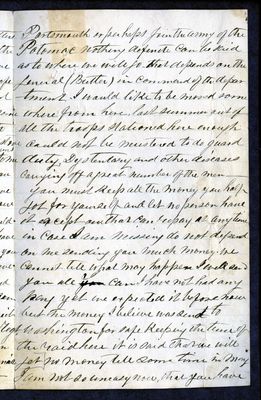 Portsmouth or perhaps join the army of the
Potomac nothing definite can be said
as to where we will go. that depends on the
General (Butler) in command of the depar
tment. I would like to be moved some
where from here. last summer out of
all the troops stationed here enough
could not be mustered to do guard
duty, Dysentary and other diseases
carrying off a great number of the men
you must keep all the money you have
got for yourself and let no person have
it except our that can repay at any time
in case I am missing do not depend
on me sending you much money we
cannot tell what may happen I will send
you all I can I have not had any
pay yet we expected it before now
but the money I believe was sent to
Washington for safe keeping the time of
the raid here it is said that we will
get no money till some time in May
I am not so uneasy now, that you have